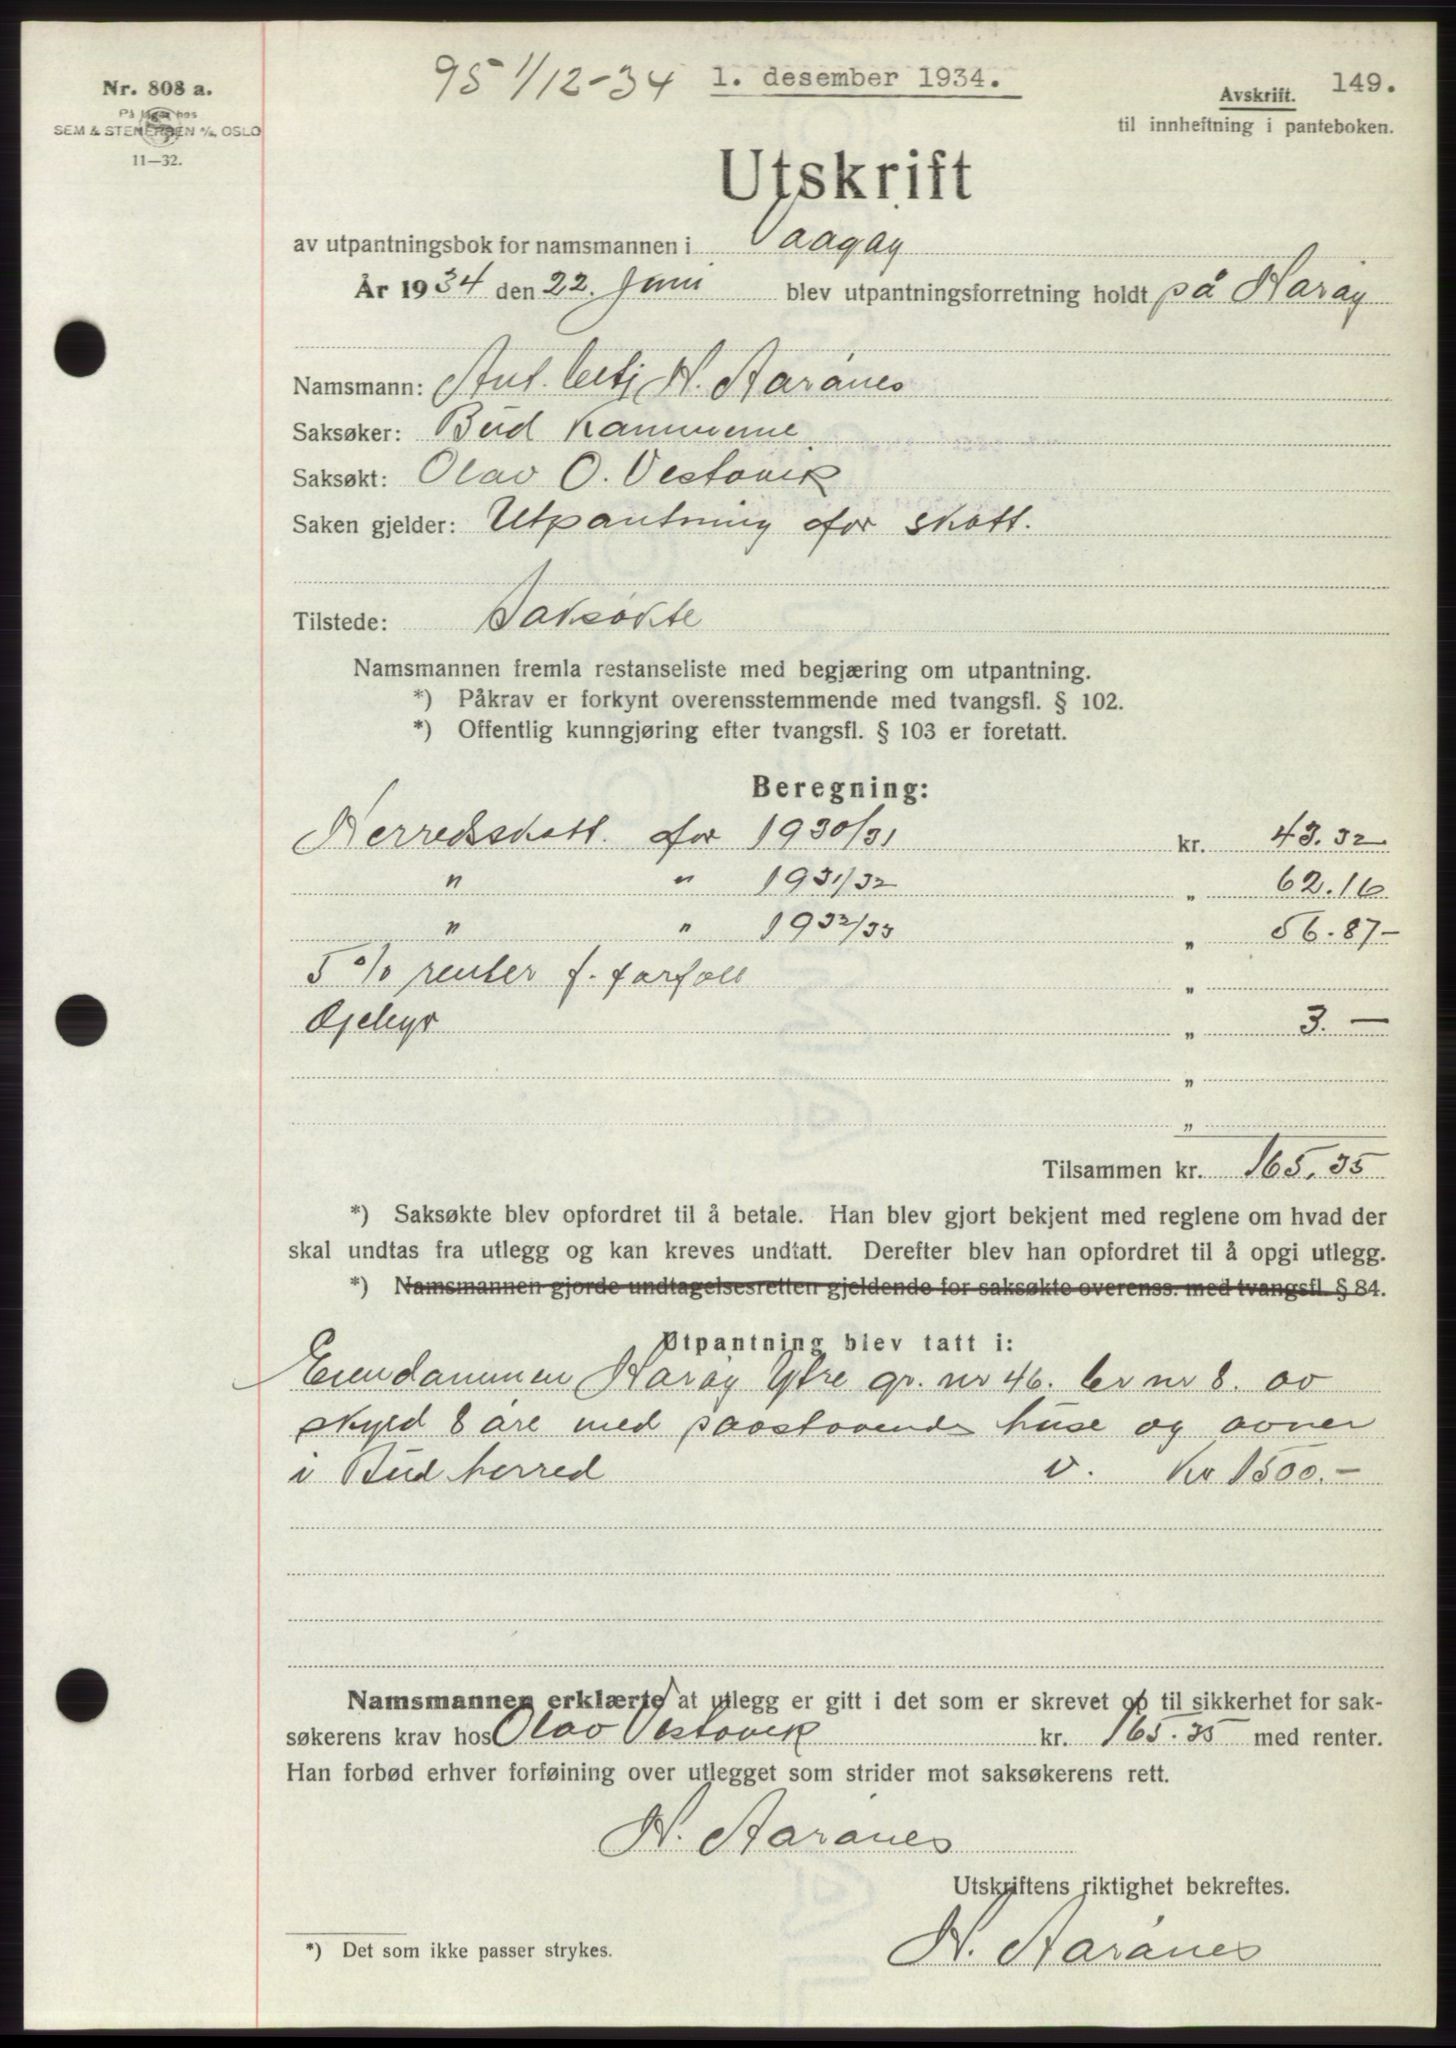 95 1/12-34 1. desember 1934.
149.
Nr. 808 a.
På lager hos
SEM & STENERSEN A/S, OSLO
11—32.
Avskrift.
til innheftning i panteboken.
Utskrift
av utpantningsbok for namsmannen i Vaagøy
År 1934 den 22. Juni blev utpantningsforretning holdt på Harøy
Namsmann: Aut. betj N. Aarönes
Saksøker: Bud Kommune
Saksøkt: Olav O. Vestavik
Saken gjelder: Utpantning for skatt.
Tilstede: Saksøkte
Namsmannen fremla restanseliste med begjæring om utpantning.
*) Påkrav er forkynt overensstemmende med tvangsfl. § 102.
*) Offentlig kunngjøring efter tvangsfl. § 103 er foretatt.
Beregning:
Herredsskatt. for 1930/31 kr. 43.32
" " 1931/32 " 62.16
" " 1932/33 " 56.87-
5 % renter f. forfall "
Gjebyr " 3. —
"
"
Tilsammen kr. 165.35
*) Saksøkte blev opfordret til å betale. Han blev gjort bekjent med reglene om hvad der
skal undtas fra utlegg og kan kreves undtatt. Derefter blev han opfordret til å opgi utlegg.
*) Namsmannen gjorde undtagelsesretten gjeldende for saksøkte overenss. med tvangsfl. § 84.
Utpantning blev tatt i:
Eiendommen Harøy Ytre gr. nr 46. br nr 8. av
skyld 8 øre med paastaaende huse og avner
i Bud herred v. Kr 1500.-
Namsmannen erklærte at utlegg er gitt i det som er skrevet op til sikkerhet for sak-
søkerens krav hos Olav Vestavik kr. 165.35 med renter.
Han forbød erhver forføining over utlegget som strider mot saksøkerens rett.
N. Aarönes
Utskriftens riktighet bekreftes.
N. Aarönes
*) Det som ikke passer strykes.